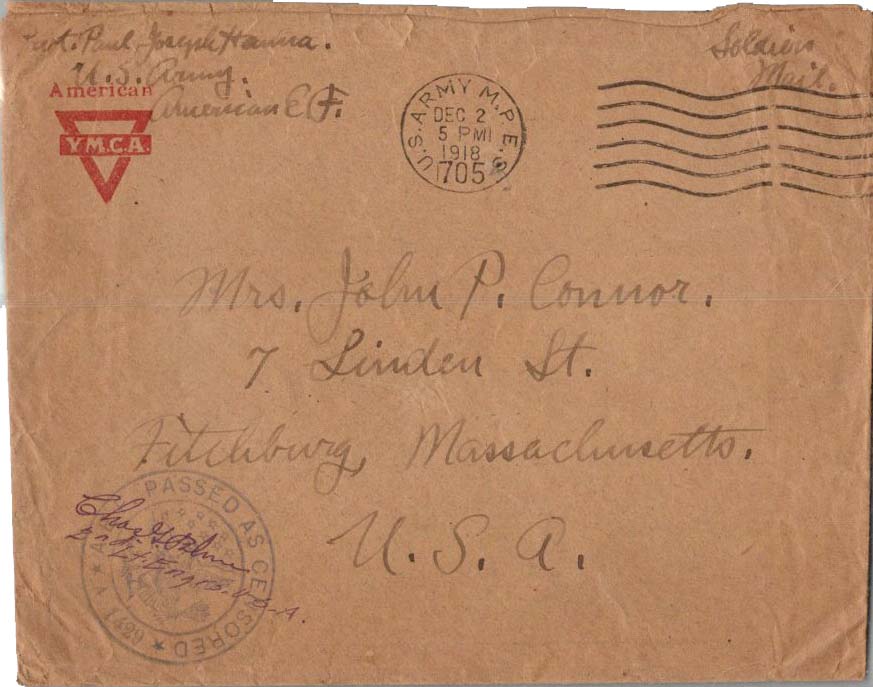 Paul Joseph Hanna.
U.S. Army.
American E.F.
Soldiers
Mail.
American
Y.M.C.A.
U.S. ARMY M.P.E.S.
DEC 2
5 PM
1918
705
Mrs. John P. Connor.
7 Linden St.
Fitchburg, Massachusetts.
U. S. A.
PASSED AS CENSORED
Chas
U.S.A.